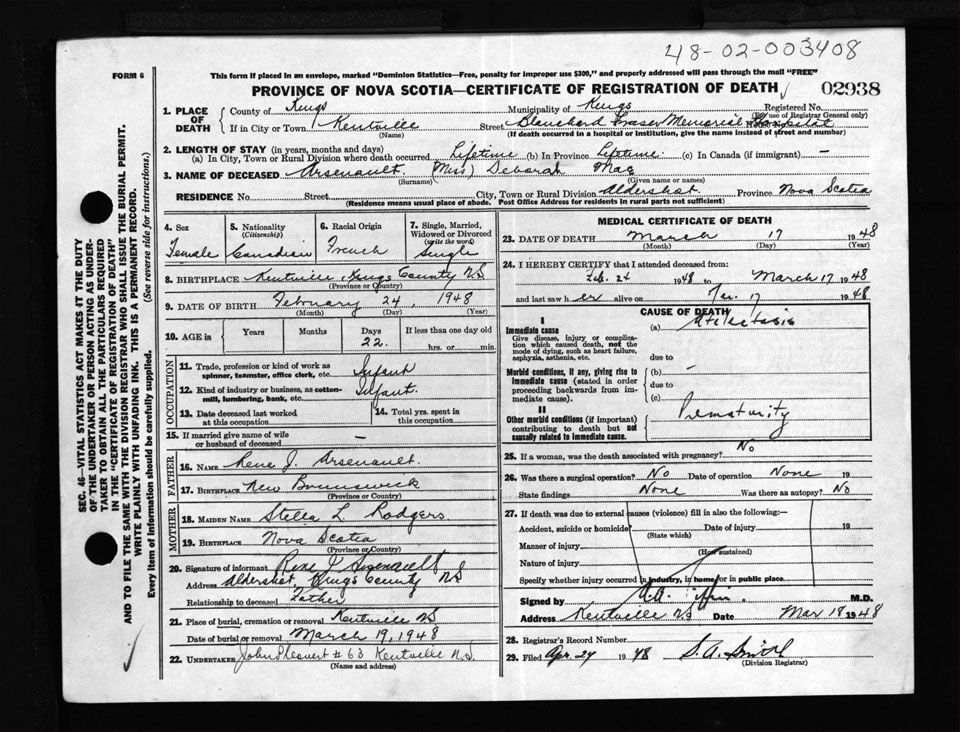 48-02-003408
FORM 6
This form if placed in an envelope, marked "Dominion Statistics—Free, penalty for improper use $300," and properly addressed will pass through the mail "FREE"
PROVINCE OF NOVA SCOTIA—CERTIFICATE OF REGISTRATION OF DEATH 02938
1. PLACE OF DEATH
County of Kings Municipality of Kings Registered No.
(For use of Registrar General only)
If in City or Town Kentville Street Blanchard Fraser Memorial Hospital
(Name) (If death occurred in a hospital or institution, give the name instead of street and number)
2. LENGTH OF STAY (in years, months and days)
(a) In City, Town or Rural Division where death occurred Lifetime (b) In Province Lifetime. (c) In Canada (if immigrant) —
3. NAME OF DECEASED Arsenault. (Miss) Deborah Mae
(Surname) (Given name or names)
RESIDENCE No. Street City, Town or Rural Division Aldershot Province Nova Scotia
(Residence means usual place of abode. Post Office Address for residents in rural parts not sufficient)
4. Sex Female
5. Nationality (Citizenship) Canadian
6. Racial Origin French
7. Single, Married, Widowed or Divorced (write the word) Single
8. BIRTHPLACE Kentville Kings County NS
(Province or Country)
9. DATE OF BIRTH February 24, 1948
(Month) (Day) (Year)
10. AGE in Years Months Days 22. If less than one day old hrs. or min.
OCCUPATION
11. Trade, profession or kind of work as spinner, teamster, office clerk, etc. Infant
12. Kind of industry or business, as cotton-mill, lumbering, bank, etc. Infant.
13. Date deceased last worked at this occupation
14. Total yrs. spent in this occupation
15. If married give name of wife or husband of deceased —
FATHER
16. Name Rene J. Arsenault.
17. Birthplace New Brunswick
(Province or Country)
MOTHER
18. Maiden Name Stella L. Rodgers.
19. Birthplace Nova Scotia
(Province or Country)
20. Signature of informant Rene J Arsenault
Address Aldershot Kings County NS
Relationship to deceased Father
21. Place of burial, cremation or removal Kentville NS
Date of burial or removal March 19, 1948
22. UNDERTAKER John # 63 Kentville N.S.
(Name and address)
MEDICAL CERTIFICATE OF DEATH
23. DATE OF DEATH March 17 1948
(Month) (Day) (Year)
24. I HEREBY CERTIFY that I attended deceased from
Feb. 24 1948 to March 17 1948
and last saw her alive on 17 1948
CAUSE OF DEATH
I
Immediate cause (a) Atelectasis
Give disease, injury or complication which caused death, not the mode of dying, such as heart failure, asphyxia, asthenia, etc.
due to
Morbid conditions, if any, giving rise to immediate cause (stated in order proceeding backwards from immediate cause).
(b) —
due to
(c)
II
Other morbid conditions (if important) contributing to death but not causally related to immediate cause.
Prematurity
25. If a woman, was the death associated with pregnancy? No
26. Was there a surgical operation? No Date of operation None 19
State findings None Was there an autopsy? No
27. If death was due to external causes (violence) fill in also the following:—
Accident, suicide or homicide Date of injury 19
(State which)
Manner of injury
(How sustained)
Nature of injury
Specify whether injury occurred in industry, in home or in public place
Signed by M.D.
Address Kentville NS Date Mar 18 1948
28. Registrar's Record Number
29. Filed Apr. 24 1948 S. A. Smith
(Division Registrar)
SEC. 46—VITAL STATISTICS ACT MAKES IT THE DUTY
OF THE UNDERTAKER OR PERSON ACTING AS UNDER-
TAKER TO OBTAIN ALL THE PARTICULARS REQUIRED
IN THE "CERTIFICATE OF REGISTRATION OF DEATH"
AND TO FILE THE SAME WITH THE DIVISION REGISTRAR WHO SHALL ISSUE THE BURIAL PERMIT.
WRITE PLAINLY WITH UNFADING INK. THIS IS A PERMANENT RECORD.
Every item of Information should be carefully supplied. (See reverse side for instructions.)